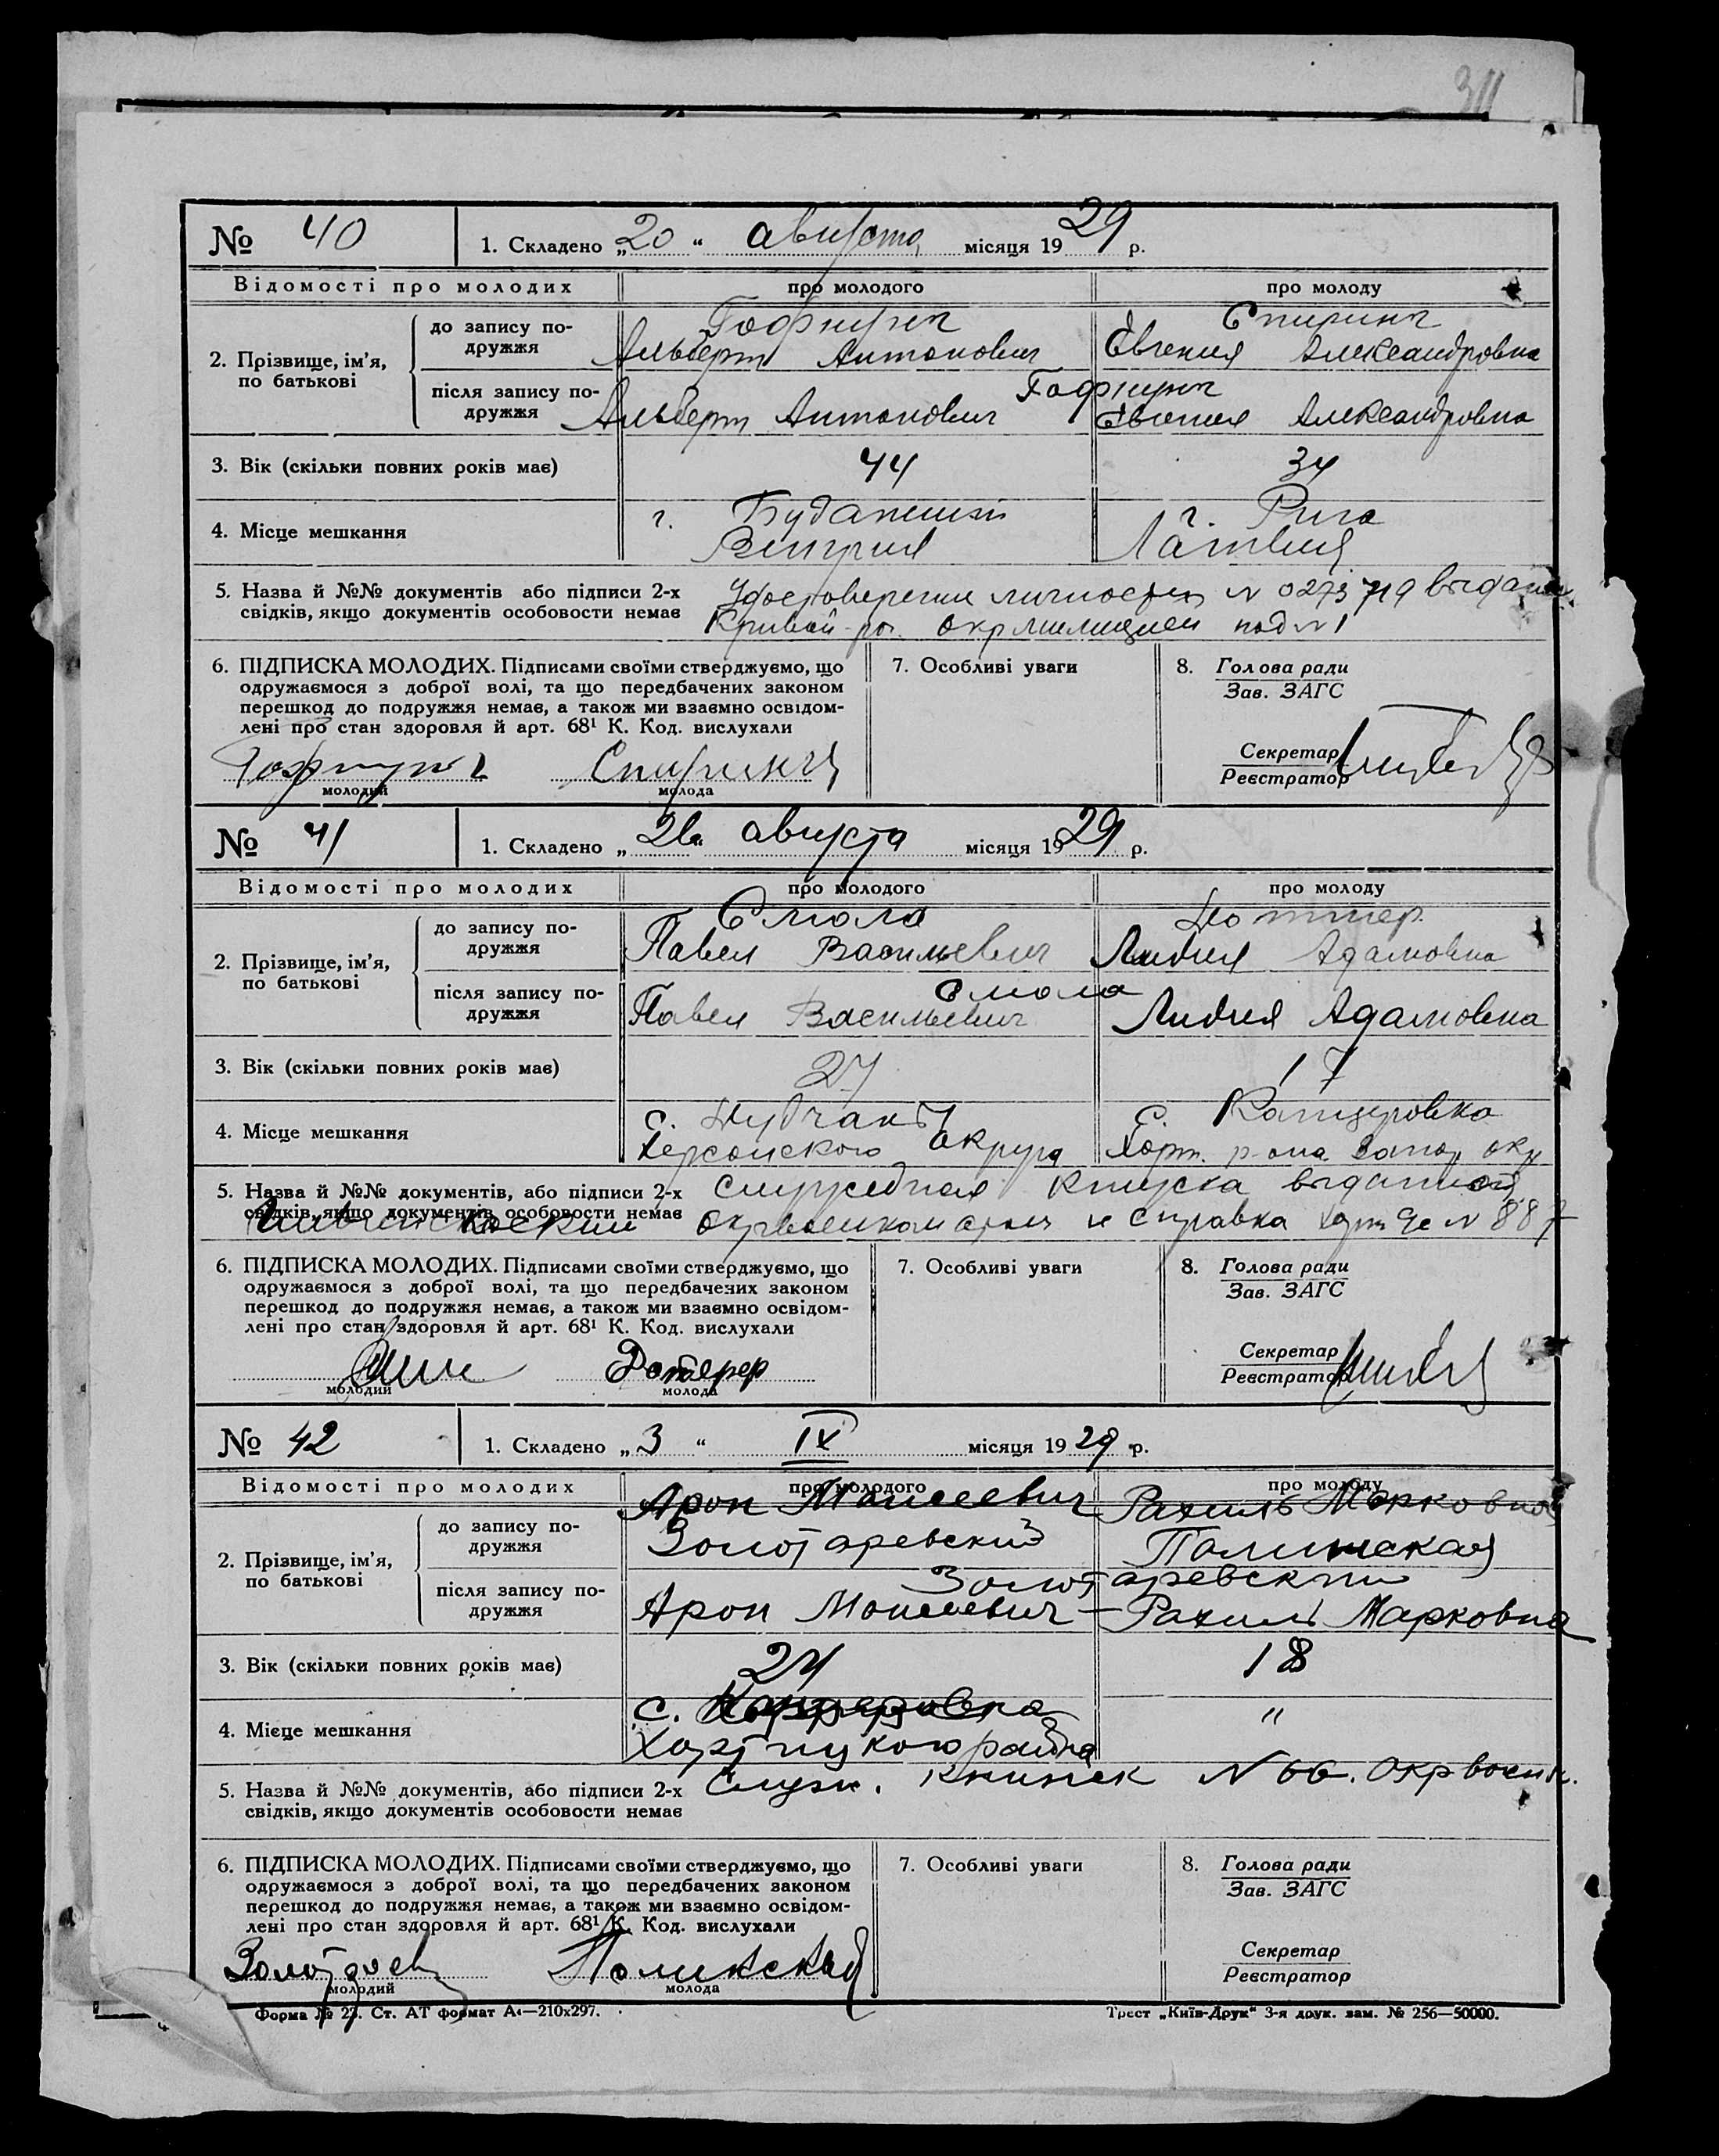 311
№ 40 1. Складено „20“ августа місяця 1929 р.
Відомості про молодих про молодого про молоду
2. Прізвище, ім'я, по батькові
до запису по-
дружжя
Гофнунг Спиринг
Альберт Антонович Евгения Александровна
після запису по-
дружжя
Гофнунг
Альберт Антонович Евгения Александровна
3. Вік (скільки повних років має) 44 34
4. Місце мешкання
г. Будапешт г. Рига
Венгрия Латвия
5. Назва й №№ документів або підписи 2-х Удостоверение личности N 0273719 выдано
свідків, якщо документів особовости немає Кривой-рог. окрмилицией под N 1
6. ПІДПИСКА МОЛОДИХ. Підписами своїми стверджуємо, що
одружаємося з доброї волі, та що передбачених законом
перешкод до подружжя немає, а також ми взаємно освідом-
лені про стан здоровля й арт. 68¹ К. Код. вислухали
Гофнунг
молодий молода
7. Особливі уваги
8. Голова ради
Зав. ЗАГС
Секретар
Реєстратор
№ 41 1. Складено „26“ августа місяця 1929 р.
Відомості про молодих про молодого про молоду
2. Прізвище, ім'я, по батькові
до запису по-
дружжя
Смола
Павел Васильевич Лидия Адамовна
після запису по-
дружжя
Смола
Павел Васильевич Лидия Адамовна
3. Вік (скільки повних років має) 27 17
4. Місце мешкання
с. с. Канцеровка
Херсонского округа Хорт. р-она Запор окр
5. Назва й №№ документів, або підписи 2-х Служебная книжка выданной
свідків, якщо документів особовости немає окрвоенкоматом и справка N 887
6. ПІДПИСКА МОЛОДИХ. Підписами своїми стверджуємо, що
одружаємося з доброї волі, та що передбачених законом
перешкод до подружжя немає, а також ми взаємно освідом-
лені про стан здоровля й арт. 68¹ К. Код. вислухали
молодий молода
7. Особливі уваги
8. Голова ради
Зав. ЗАГС
Секретар
Реєстратор
№ 42 1. Складено „3“ IX місяця 1929 р.
Відомості про молодих про молодого про молоду
2. Прізвище, ім'я, по батькові
до запису по-
дружжя
Арон Моисеевич Рахиль Марковна
Золотаревский Полинская
після запису по-
дружжя
Золотаревский
Арон Моисеевич – Рахиль Марковна
3. Вік (скільки повних років має) 24 18
4. Місце мешкання
с. Канцеровка "
Хортицкого района
5. Назва й №№ документів, або підписи 2-х Служ. книжек N 66. Окрвоенк.
свідків, якщо документів особовости немає
6. ПІДПИСКА МОЛОДИХ. Підписами своїми стверджуємо, що
одружаємося з доброї волі, та що передбачених законом
перешкод до подружжя немає, а також ми взаємно освідом-
лені про стан здоровля й арт. 68¹ К. Код. вислухали
Полинская
молодий молода
7. Особливі уваги
8. Голова ради
Зав. ЗАГС
Секретар
Реєстратор
Форма № 23. Ст. АТ формат А4—210х297. Трест „Київ-Друк“ 3-я друк. зам. № 256—50000.